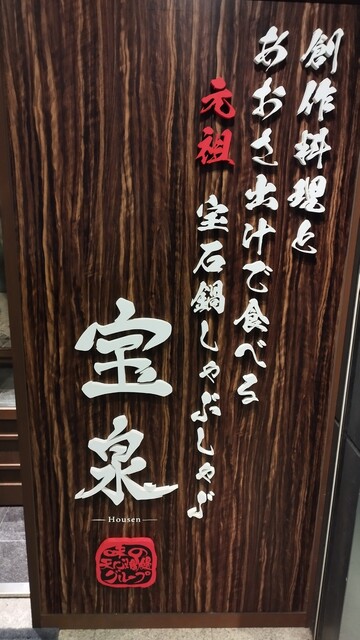 創作料理と
あおさ出汁で食べる
元祖 宝石鍋しゃぶしゃぶ
宝泉
Housen
味の
グループ